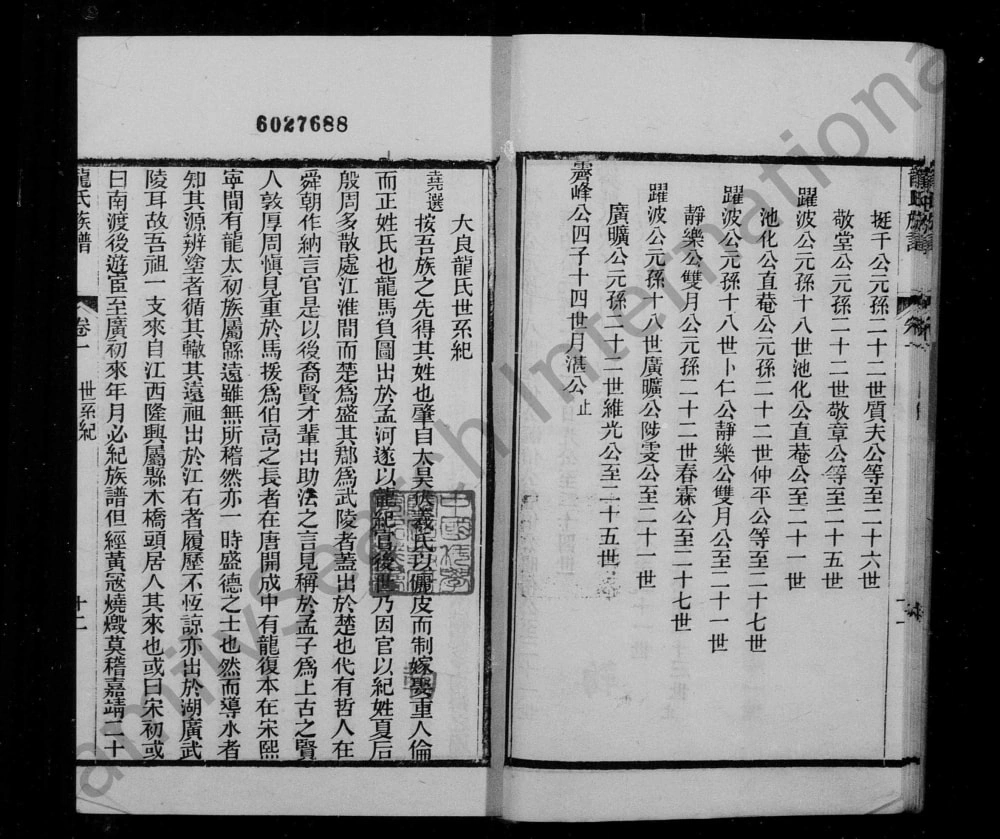 6027688
挺千公元孫二十二世質夫公等至二十六世
敬堂公元孫二十二世敬章公等至二十五世
躍波公元孫十八世池化公直菴公至二十一世
池化公直菴公元孫二十二世仲平公等至二十七世
躍波公元孫十八世卜仁公靜樂公雙月公至二十一世
靜樂公雙月公元孫二十二世春霖公至二十七世
躍波公元孫十八世廣曠公陟雯公至二十一世
廣曠公元孫二十二世維光公至二十五世
霽峰公四子十四世月湛公止
大良龍氏世系紀
堯選 按吾族之先得其姓也肇自太昊伏羲氏以儷皮而制嫁娶重人倫
而正姓氏也龍馬負圖出於孟河遂以龍紀官後世乃因官以紀姓夏后
殷周多散處江淮間而楚爲盛其郡爲武陵者蓋出於楚也代有哲人在
舜朝作納言官是以後裔賢才輩出助法之言見稱於孟子爲上古之賢
人敦厚周愼見重於馬援爲伯高之長者在唐開成中有龍復本在宋熙
寧間有龍太初族屬緜遠雖無所稽然亦一時盛德之士也然而導水者
知其源辨塗者循其轍其遠祖出於江右者履歷不恆諒亦出於湖廣武
陵耳故吾祖一支來自江西隆興屬縣木橋頭居人其來也或曰宋初或
曰南渡後遊宦至廣初來年月必紀族譜但經黃冦燒燬莫稽嘉靖二十
龍氏族譜
卷一
世系紀
十二
familysearch International